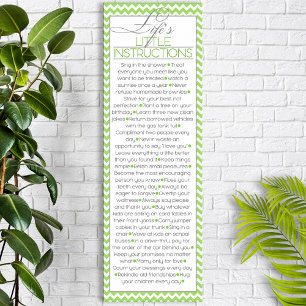 Life's
LITTLE
INSTRUCTIONS
Sing in the shower • Treat
everyone you meet like you
want to be treated • Watch a
sunrise once a year • Never
refuse homemade brownies •
Strive for your best not
perfection • Plant a tree on your
birthday • Learn three new clean
jokes • Return borrowed vehicles
with the gas tank full •
Compliment three people every
day • Never waste an
opportunity to say "I love you" •
Leave everything a little better
than you found it • Keep things
simple • Relish small pleasures •
Become the most encouraging
person you know • Floss your
teeth every day • Always be
eager to forgive • Overtip your
waitress • Always say please
and thank you • Buy whatever
kids are selling on card tables in
their front yards • Carry jumper
cables in your trunk • Sing in a
choir • Wave at kids on school
buses • In a drive-thru, pay for
the order of the car behind you •
Keep your promises, no matter
what • Marry only for love •
Count your blessings every day
• Rekindle old friendships • Hug
your children every day •